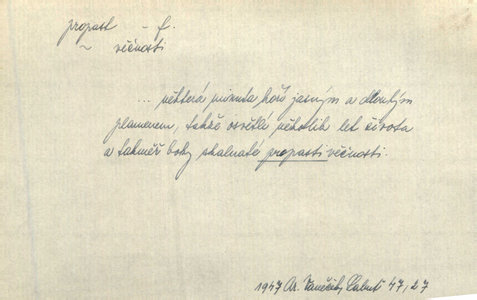 propast - f.
~ věčnosti
... některá minuta hoří jasným a dlouhým
plamenem, takže osvětlí několik let života
a takměř boky skalnaté propasti věčnosti.
1947 Ar. 47, 27